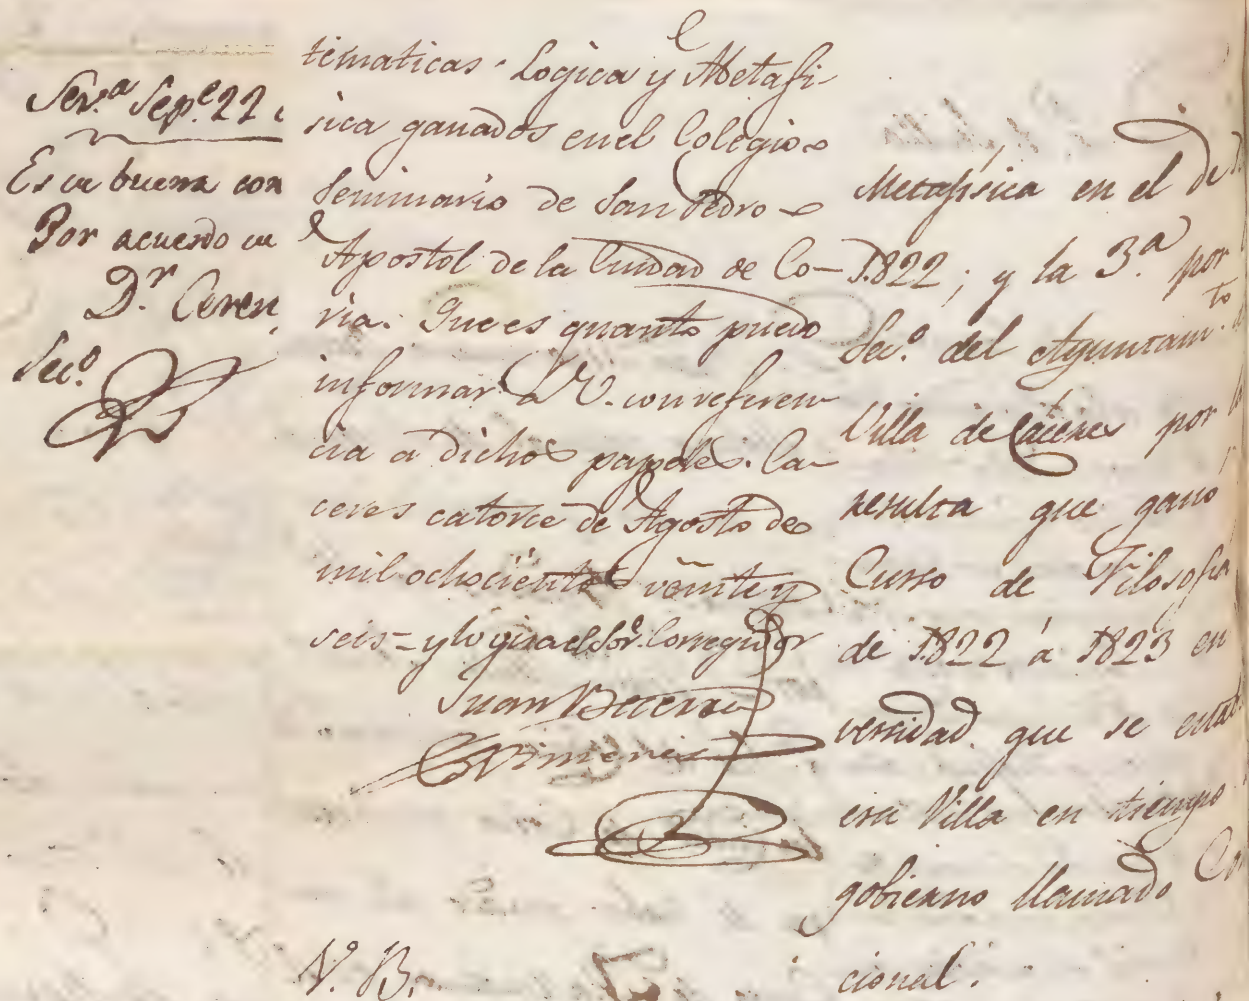 Sev.ª Sep.e 22
Es en buena con
Por acuerdo
D.r Ceren
Sec.º
tematicas. Logica y Metafi-
sica ganados en el Colegio
Seminario de San Pedro
Apostol de la Ciudad de Co-
ria. Que es quanto puedo
informar a V. con referen
cia a dichos papeles. Ca-
ceres catorce de Agosto de
mil ochocientos veinte y
seis = y lo visa el Sor. Corregidor
Juan Becerra
Ximenez
V.º B.
Metafísica en el de
1822; y la 3.ª por
Sec.º del Ayuntam.to
Villa de Cáceres por
resulta que ganó
Curso de Filosofia
de 1822 á 1823 en
versidad que se
esa Villa en tiempo
gobierno llamado
cional.